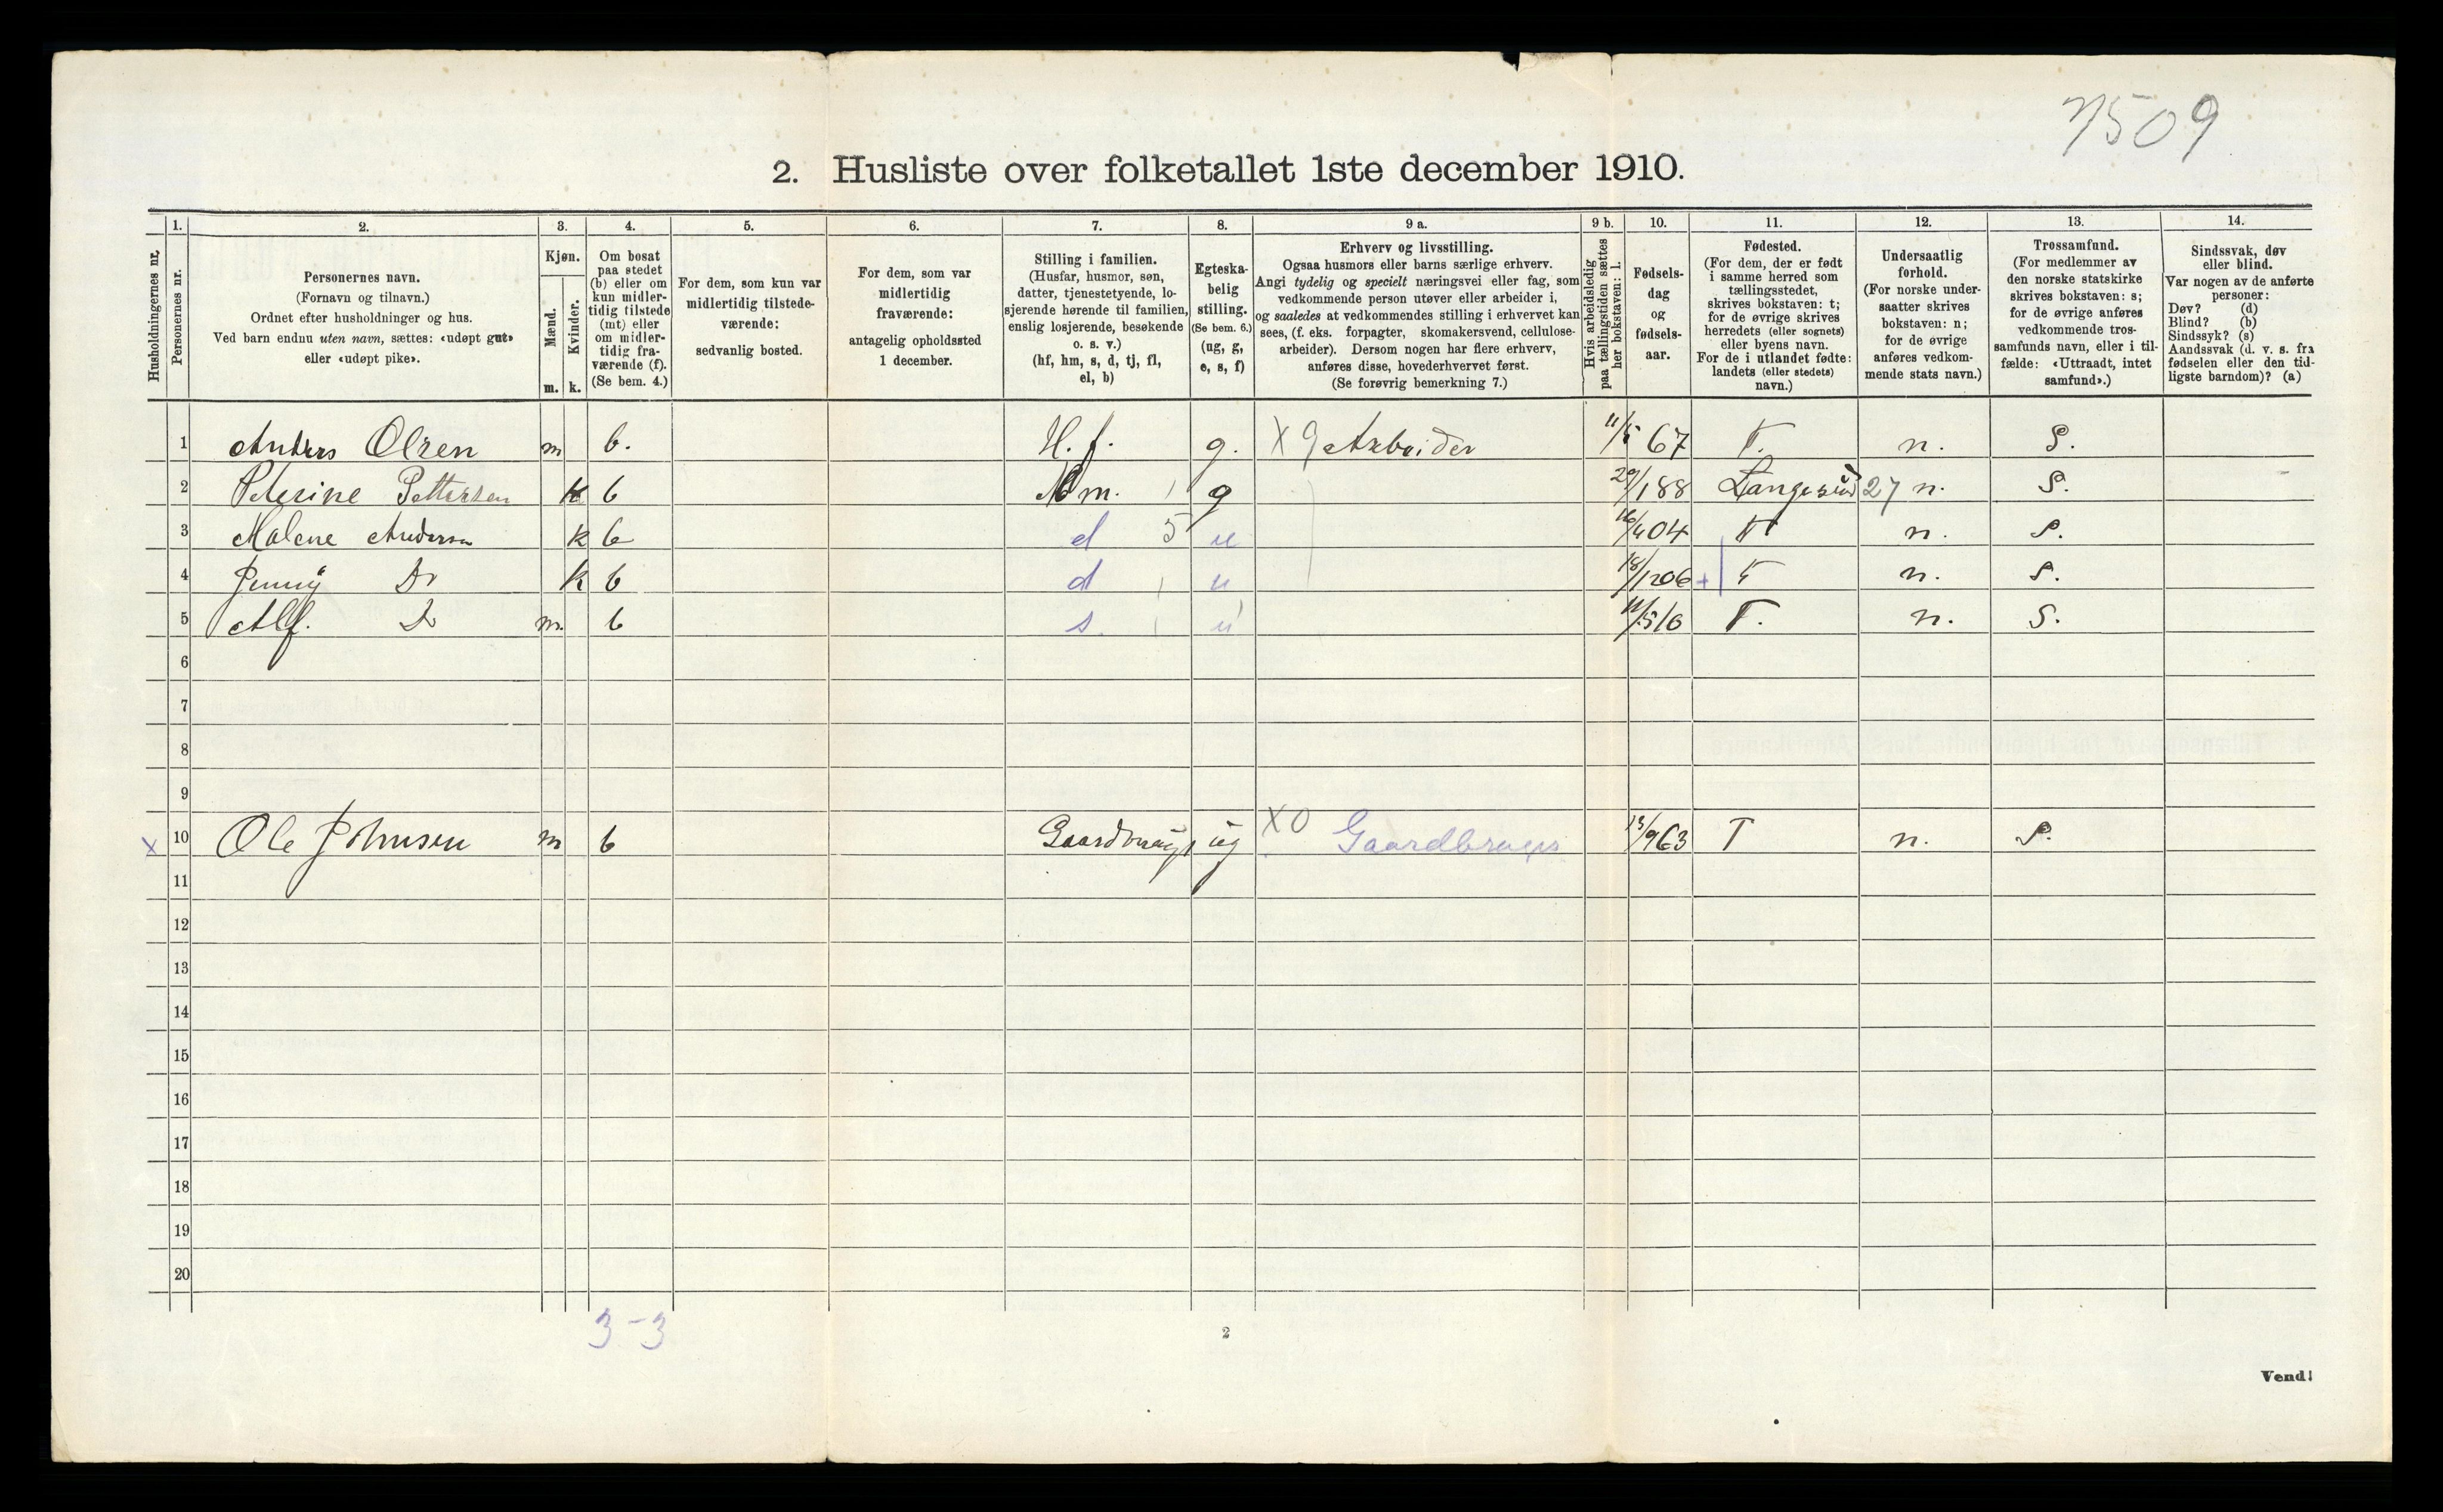 7509
2. Husliste over folketallet 1ste december 1910.
Husholdningernes nr.
1.
Personernes nr.
2.
Personernes navn.
(Fornavn og tilnavn.)
Ordnet efter husholdninger og hus.
Ved barn endnu uten navn, sættes: «udøpt gut»
eller «udøpt pike».
3.
Kjøn.
Mænd.
Kvinder.
m. k.
4.
Om bosat
paa stedet
(b) eller om
kun midler-
tidig tilstede
(mt) eller
om midler-
tidig fra-
værende (f).
(Se bem. 4.)
5.
For dem, som kun var
midlertidig tilstede-
værende:
sedvanlig bosted.
6.
For dem, som var
midlertidig
fraværende:
antagelig opholdssted
1 december.
7.
Stilling i familien.
(Husfar, husmor, søn,
datter, tjenestetyende, lo-
sjerende hørende til familien,
enslig losjerende, besøkende
o. s. v.)
(hf, hm, s, d, tj, fl,
el, b)
8.
Egteska-
belig
stilling.
(Se bem. 6.)
(ug, g,
e, s, f)
9 a.
Erhverv og livsstilling.
Ogsaa husmors eller barns særlige erhverv.
Angi tydelig og specielt næringsvei eller fag, som
vedkommende person utøver eller arbeider i,
og saaledes at vedkommendes stilling i erhvervet kan
sees, (f. eks. forpagter, skomakersvend, cellulose-
arbeider). Dersom nogen har flere erhverv,
anføres disse, hovederhvervet først.
(Se forøvrig bemerkning 7.)
9 b.
Hvis arbeidsledig
paa tællingstiden sættes
her bokstaven: l.
10.
Fødsels-
dag
og
fødsels-
aar.
11.
Fødested.
(For dem, der er født
i samme herred som
tællingsstedet,
skrives bokstaven: t;
for de øvrige skrives
herredets (eller sognets)
eller byens navn.
For de i utlandet fødte:
landets (eller stedets)
navn.)
12.
Undersaatlig
forhold.
(For norske under-
saatter skrives
bokstaven: n;
for de øvrige
anføres vedkom-
mende stats navn.)
13.
Trossamfund.
(For medlemmer av
den norske statskirke
skrives bokstaven: s;
for de øvrige anføres
vedkommende tros-
samfunds navn, eller i til-
fælde: «Uttraadt, intet
samfund».)
14.
Sindssvak, døv
eller blind.
Var nogen av de anførte
personer:
Døv? (d)
Blind? (b)
Sindssyk? (s)
Aandssvak (d. v. s. fra
fødselen eller den tid-
ligste barndom)? (a)
1 Anders Olsen m b. H. f. g. X 9 Arbeider 11/5 67 T. n. S.
2 Petrine Pettersen k b m. g 29/1 88 Langesund 27 n. S.
3 Malene Andersen k b d 5 u 16/4 04 T n. S.
4 Jenny Do k b d u 18/12 06 + T n. S.
5 Alf. Do m. b s. u 11/5 10 T. n. S.
6
7
8
9
x 10 Ole Johnsen m b Gaardbruger ug X0 Gaardbruger 13/9 63 T n. S.
11
12
13
14
15
16
17
18
19
20
3-3
2
Vend!